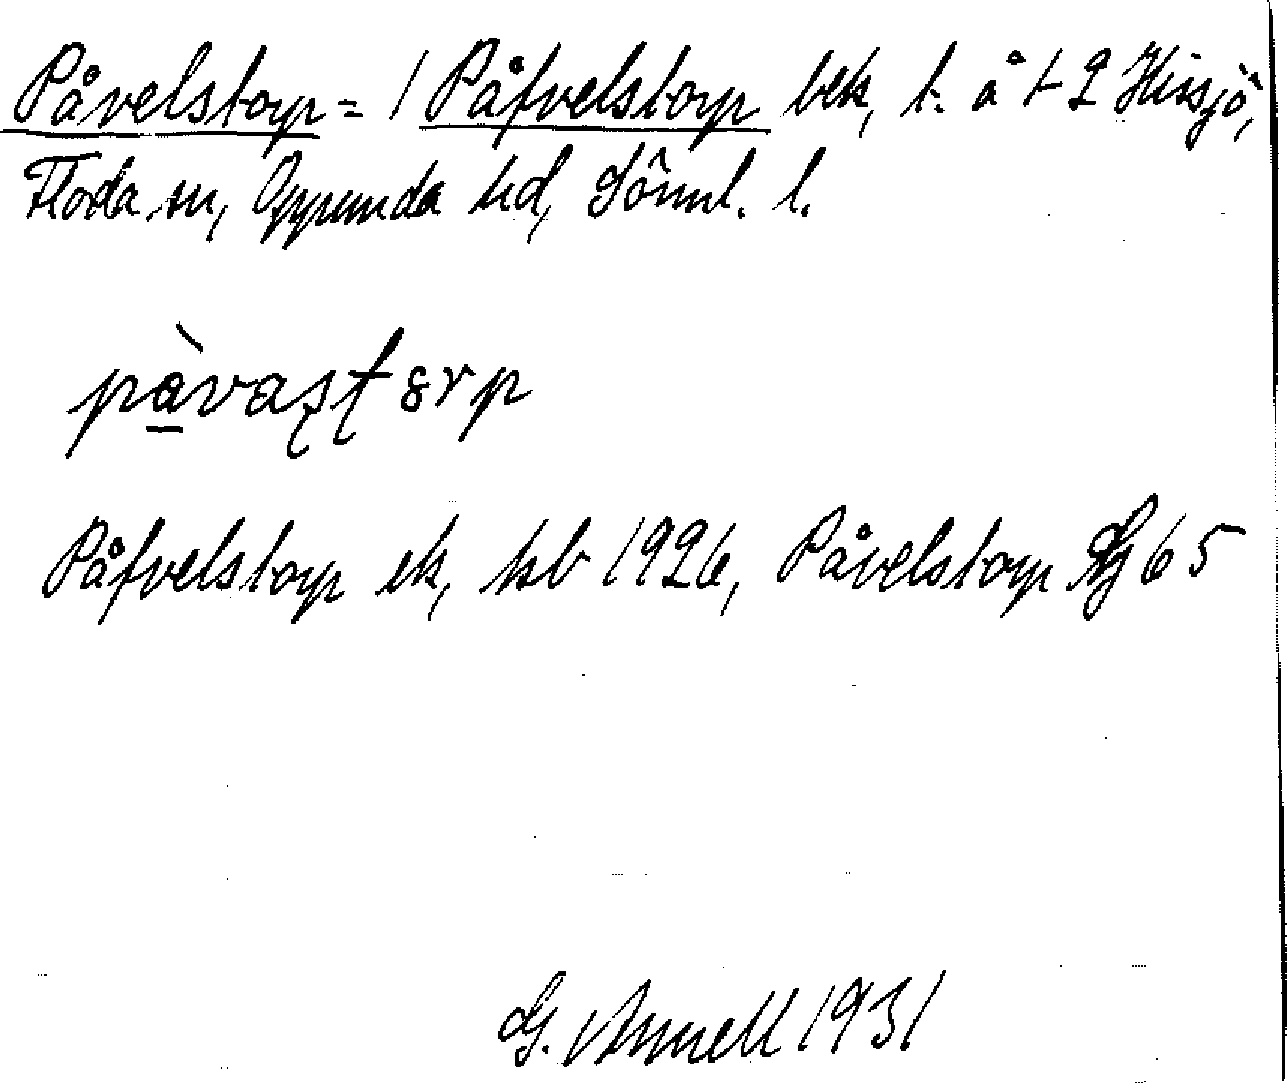 Påvelstorp = / Påfvelstorp bek, t. å 1-2 Hissjö,
Floda sn, Oppunda hd, Söml. l.
pàvaʂʈ ȣrp
Påfvelstorp ek, hsb 1926, Påvelstorp Aj 65
G. Annell 1931